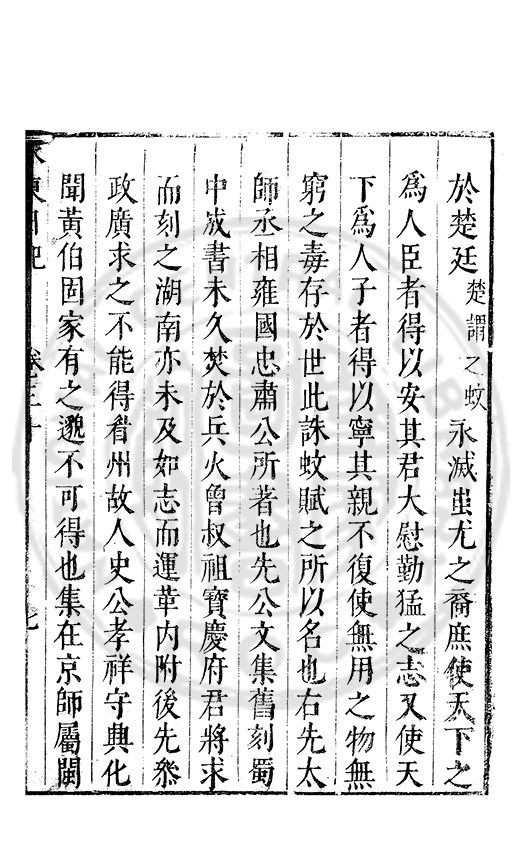 於楚廷楚謂之蚊永滅蚩尤之裔庶使天下之
爲人臣者得以安其君大慰勤猛之志又使天
下爲人子者得以寧其親不復使無用之物無
窮之毒存於世此誅蚊賦之所以名也右先太
師丞相雍國忠肅公所著也先公文集舊刻蜀
中成書未久焚於兵火曾叔祖寶慶府君將求
而刻之湖南亦未及如志而運革內附後先叅
政廣求之不能得眉州故人史公孝祥守典化
聞黃伯固家有之邈不可得也集在京師屬閩
卷三十
七